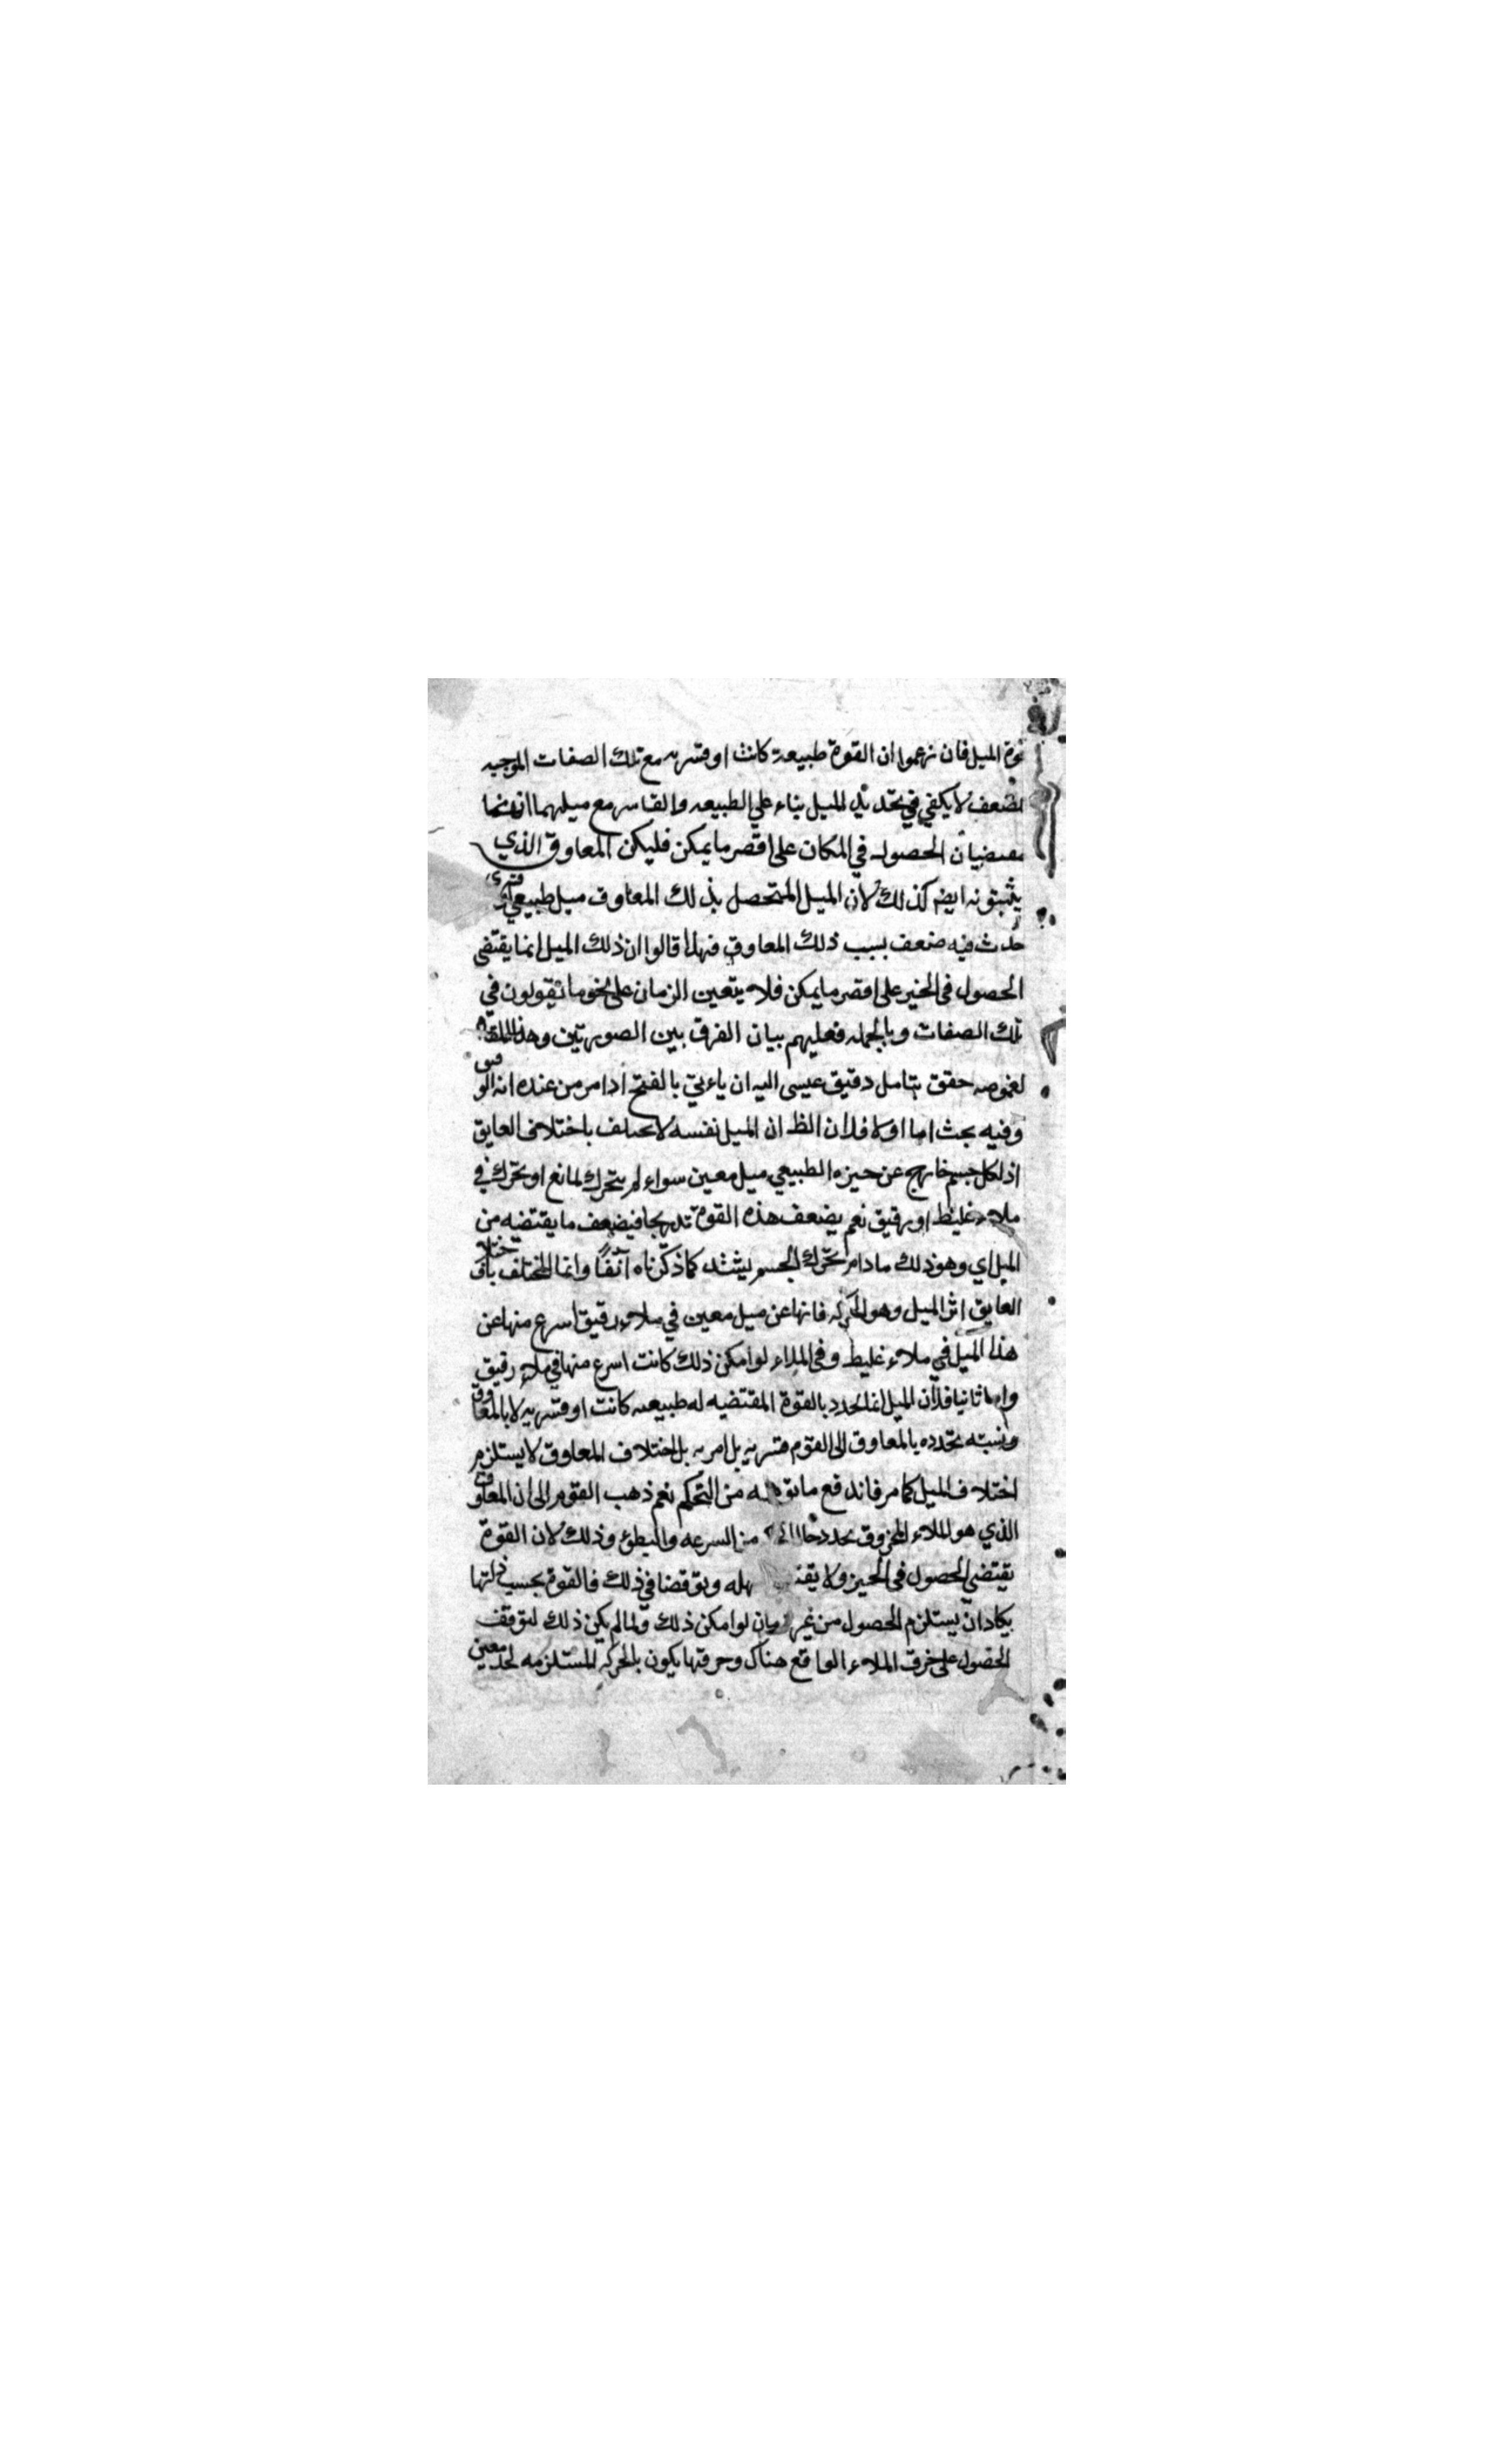 قوة الميل فان زعموا ان القوة طبيعة كانت او قسريه مع تلك الصفات الموجبه
لضعف لا يكفي في تحديد الميل بناء علي الطبيعه والقاسر مع ميلهما انهما
مقتضيان الحصول في المكان على اقصر ما يمكن فليكن المعاوق الذي
يثبتونه ايضم كذلك لان الميل المتحصل بذلك المعاوق ميل طبيعي او قسري
حدث فيه ضعف بسبب ذلك المعاوق فهلا قالوا ان ذلك الميل انما يقتضى
الحصول في الحيز على اقصر ما يمكن فلا يتعين الزمان على نحو ما تقولون في
تلك الصفات وبالجمله فعليهم بيان الفرق بين الصورتين وهذا
لغموضه حقق بتامل دقيق عيسى اليه ان ياءتي بالفتح ادامر من عنده انه
وفيه بحث اما اولا فلان الظ ان الميل نفسه لا يختلف باختلاف العايق
اذ لكل جسم خارج عن حيزه الطبيعي ميل معين سواء لم يتحرك لمانع او تحرك في
ملاء غليظ او رقيق نعم يضعف هذه القوة تدريجا فيضعف ما يقتضيه من
الميل اي وهو ذلك مادام تحرك الجسم يشتد كما ذكرناه آنفًا وانما المختلف باختلاف
العايق اثر الميل وهو الحركه فانها عن ميل معين في ملاء رقيق اسرع منها عن
هذا الميل في ملاء غليظ وفي الملاء لو امكن ذلك كانت اسرع منها في ملاء رقيق
واما ثانيا فلان الميل انما تحدد بالقوة المقتضيه له طبيعه كانت او قسريه لا بالمعاوق
ونسبته تحدده بالمعاوق الى القوم بل اختلاف المعاوق لا يستلزم
اختلاف الميل كما مر فاندفع ما من التحكم نعم ذهب القوم الى ان المعاوق
الذي هو الملاء المخروق يحدد من السرعه والبطئ وذلك لان القوة
يقتضي الحصول في الحيز ولا في ذلك فالقوة بحسب ذاتها
يكاد ان يستلزم الحصول من غير زمان لو امكن ذلك ولما لم يكن ذلك لتوقف
الحصول على خرق الملاء الواقع هناك وخرقها يكون بالحركه المستلزمه لحد معين